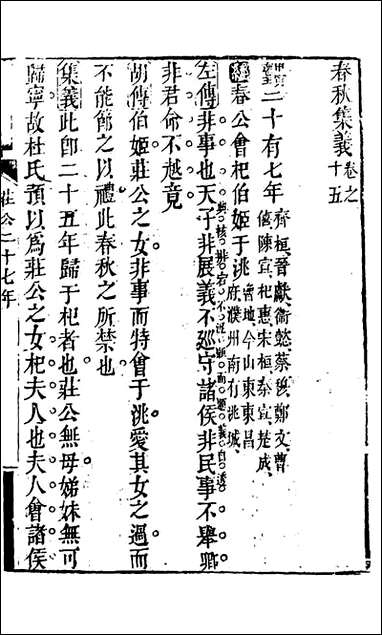 春秋集義卷之十五
二十有七年齊桓晉獻衛懿蔡穆鄭文曹僖陳宣杞惠宋桓秦宣楚成
經春公會杞伯姬于洮魯地今山東東昌府濮州南有洮城
左傳非事也天子非展義不巡守諸侯非民事不舉卿
非君命不越竟
胡傳伯姬莊公之女非事而特會于洮愛其女之過而
不能節之以禮此春秋之所禁也
集義此卽二十五年歸于杞者也莊公無母娣妹無可
歸寧故杜氏預以爲莊公之女杞夫人也夫人會諸侯
莊公二十七年